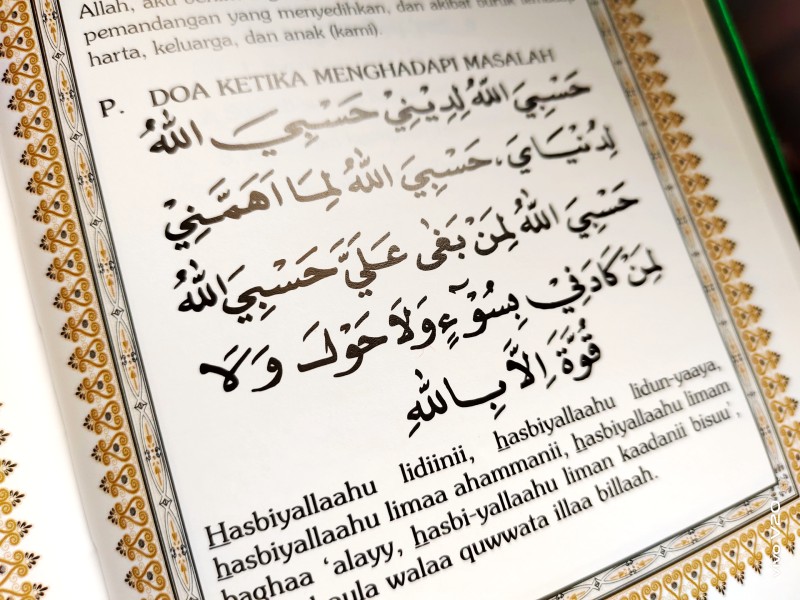 Allah, aku
pemandangan yang menyedihkan, dan akibat buruk
harta, keluarga, dan anak (kami).
P. DOA KETIKA MENGHADAPI MASALAH
حَسْبِيَ اللّٰهُ لِدِيْنِيْ حَسْبِيَ اللّٰهُ
لِدُنْيَايَ، حَسْبِيَ اللّٰهُ لِمَا اَهَمَّنِيْ
حَسْبِيَ اللّٰهُ لِمَنْ بَغٰى عَلَيَّ حَسْبِيَ اللّٰهُ
لِمَنْ كَادَنِيْ بِسُوْٓءٍ وَلَا حَوْلَ وَلَا
قُوَّةَ اِلَّا بِاللّٰهِ
Hasbiyallaahu lidiinii, hasbiyallaahu lidun-yaaya,
hasbiyallaahu limaa ahammanii, hasbiyallaahu limam
baghaa ‘alayy, hasbi-yallaahu liman kaadanii bisuu',
haula walaa quwwata illaa billaah.